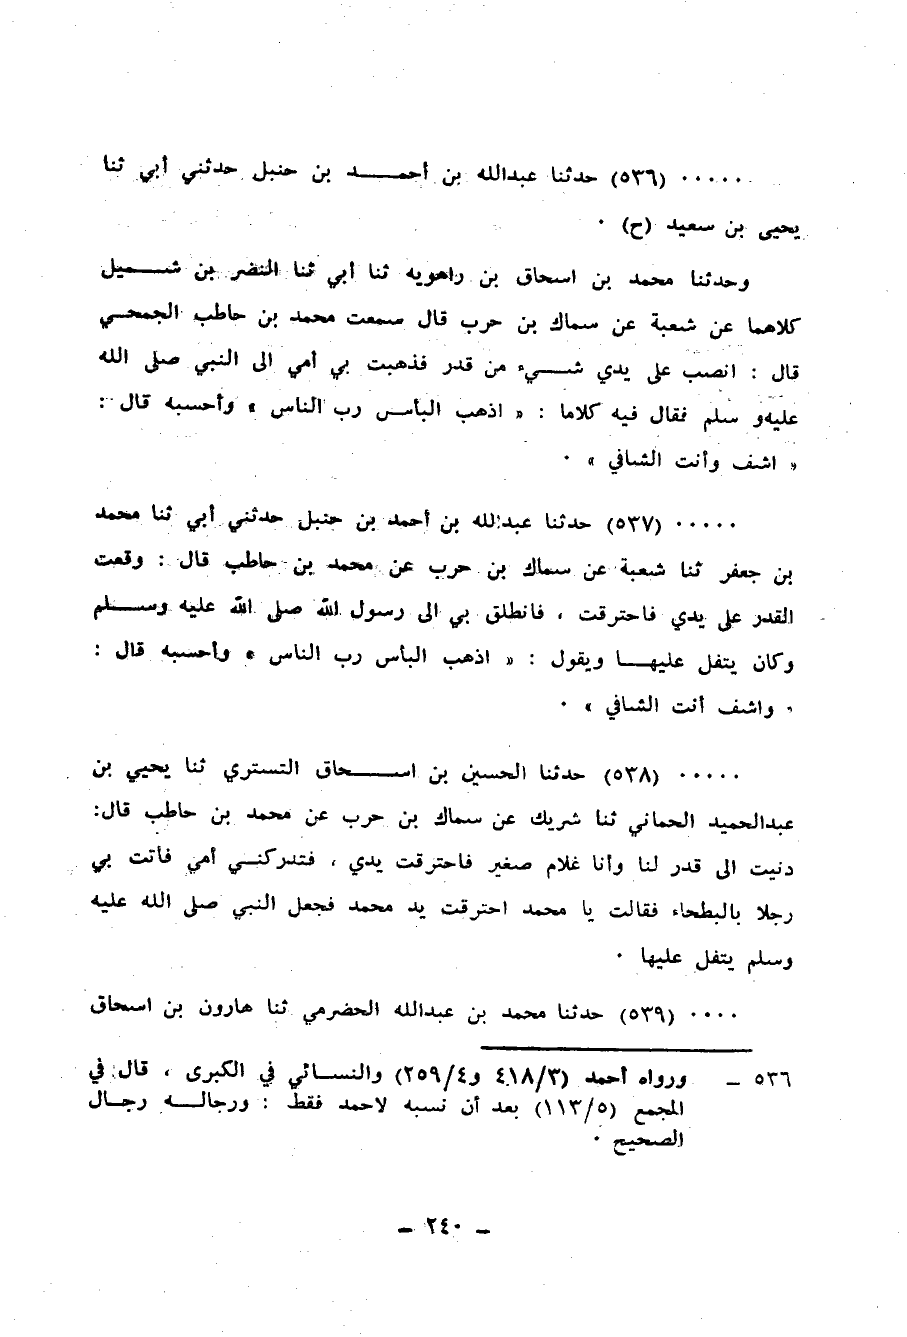 ..... (٥٣٦) حدثنا عبدالله بن أحمـــد بن حنبل حدثني أبي ثنا
يحيى بن سعيد (ح) ٠
وحدثنا محمد بن اسحاق بن راهويه ثنا أبي ثنا النضر بن شـــميل
كلاهما عن شعبة عن سماك بن حرب قال سمعت محمد بن حاطب الجمحـي
قال : انصب على يدي شـــيء من قدر فذهبت بي أمي الى النبي صلى الله
عليهو سلم فقال فيه كلاما : « اذهب البأس رب الناس » وأحسبه قال :
« اشف وأنت الشافي » ٠
..... (٥٣٧) حدثنا عبدالله بن أحمد بن حنبل حدثني أبي ثنا محمد
بن جعفر ثنا شعبة عن سماك بن حرب عن محمد بن حاطب قال : وقعت
القدر على يدي فاحترقت ، فانطلق بي الى رسول الله صلى الله عليه وســـلم
وكان يتفل عليهـــا ويقول : « اذهب البأس رب الناس » وأحسبه قال :
، واشف أنت الشافي » ٠
..... (٥٣٨) حدثنا الحسين بن اســـحاق التستري ثنا يحيي بن
عبدالحميد الحماني ثنا شريك عن سماك بن حرب عن محمد بن حاطب قال:
دنيت الى قدر لنا وأنا غلام صغير فاحترقت يدي ، فتدركنـي أمي فأتت بي
رجلا بالبطحاء فقالت يا محمد احترقت يد محمد فجعل النبي صلى الله عليه
وسلم يتفل عليها ٠
.... (٥٣٩) حدثنا محمد بن عبدالله الحضرمي ثنا هارون بن اسحاق
٥٣٦ ــ ورواه أحمد (٤١٨/٣ و٢٥٩/٤) والنســائي في الكبرى ، قال في
المجمع (١١٣/٥) بعد أن نسبه لاحمد فقط : ورجالـــه رجـال
الصحيح ٠
ــ ٢٤٠ ــ